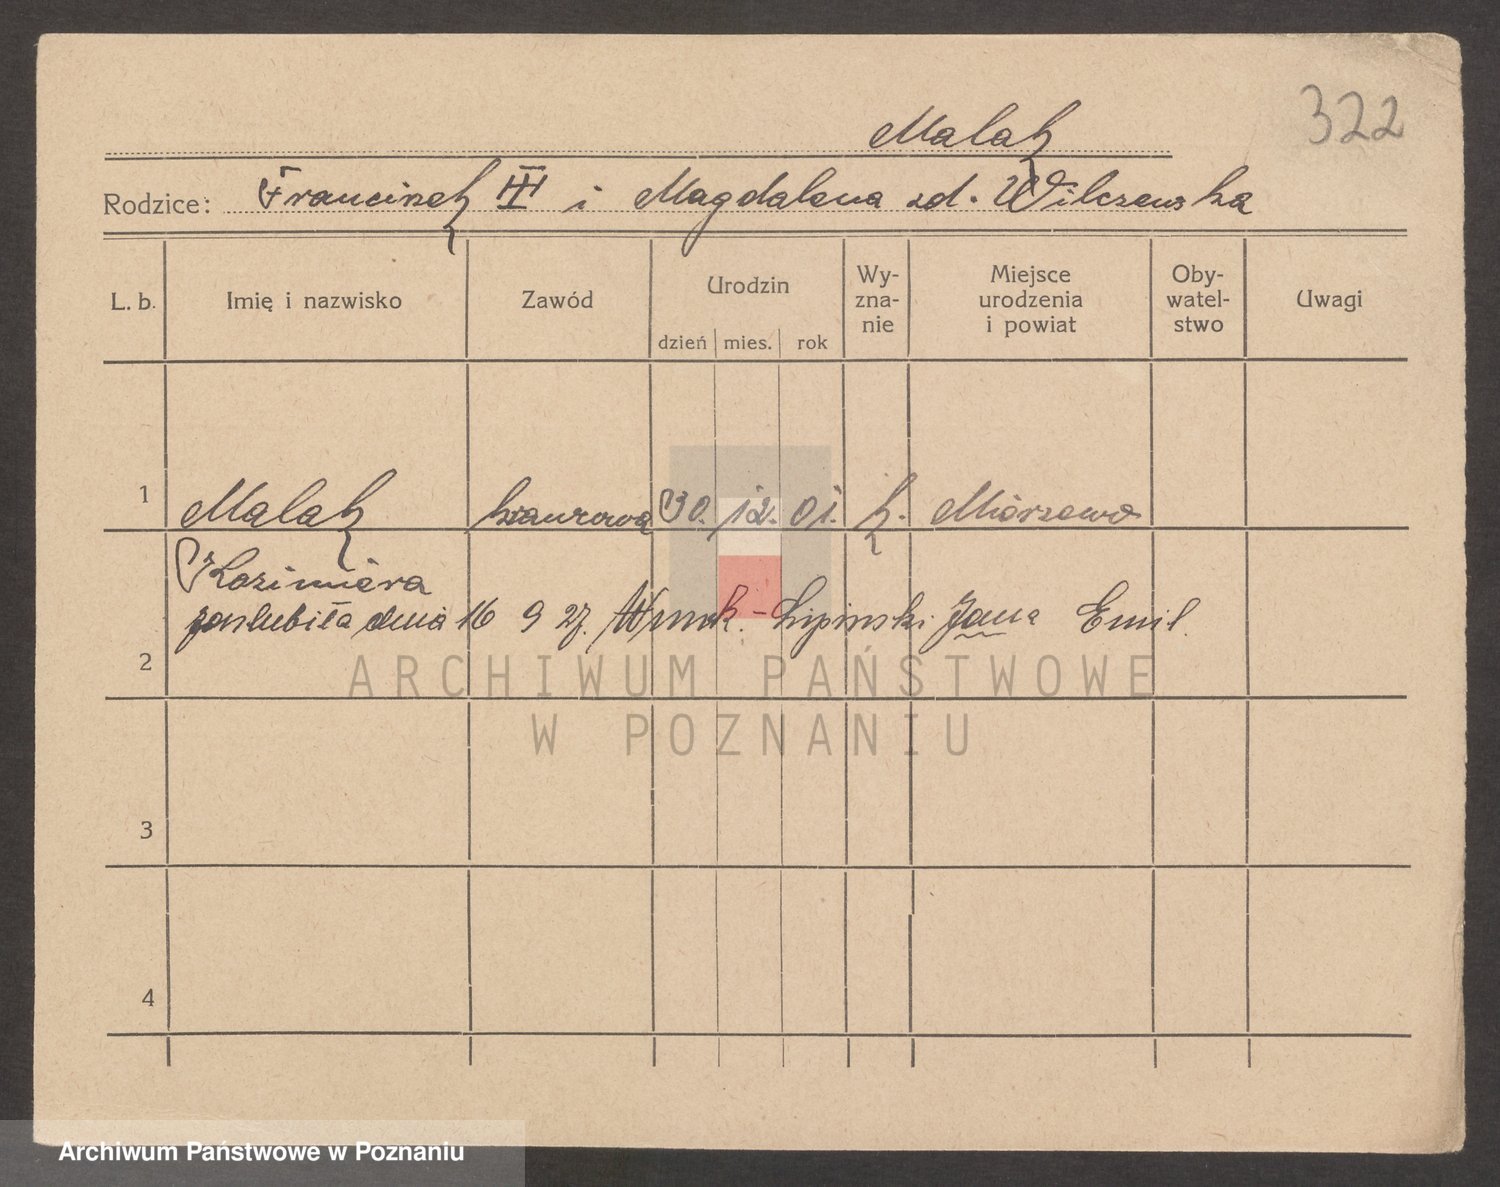 322
Malak
Rodzice: Franciszek III i Magdalena zd. Wilczewska
L. b. Imię i nazwisko Zawód Urodzin dzień mies. rok Wy-zna-nie Miejsce urodzenia i powiat Oby-watel-stwo Uwagi
1 Malak krawcowa 30. 12. 01. k. Miórzewo
Kazimiera
poślubiła dnia 16 9 27. Wruck.-Lipinski Jana Emil.
2
3
4
ARCHIWUM PAŃSTWOWE
W POZNANIU
Archiwum Państwowe w Poznaniu